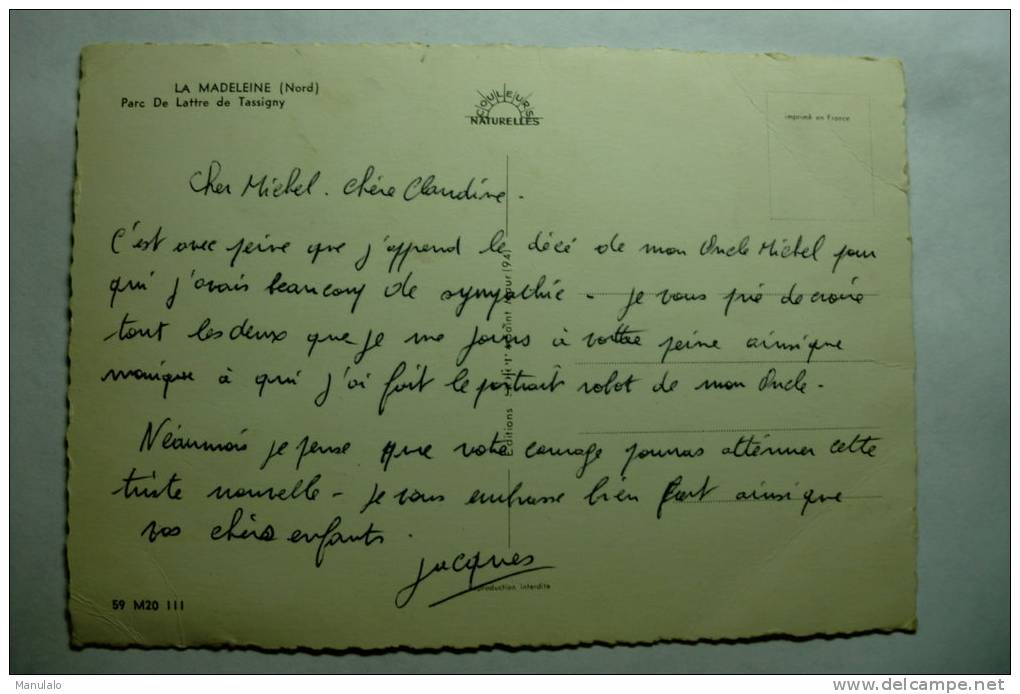 LA MADELEINE (Nord)
Parc De Lattre de Tassigny
COULEURS
NATURELLES
imprimé en France
Cher Michel - Chère Claudine -
C'est avec peine que j'apprend le décé de mon Oncle Michel pour
qui j'avais beaucoup de sympathie - je vous prie de croire
tout les deux que je me joins à votre peine ainsique
monique à qui j'ai fait le portrait robot de mon Oncle -
Néanmois je pense que votre courage pourras atténuer cette
triste nouvelle - je vous embrasse bien fort ainsi que
vos chéres enfants.
jacques
Editions
Maur (94)
production interdite
59 M20 111
Manulalo
www.delcampe.net